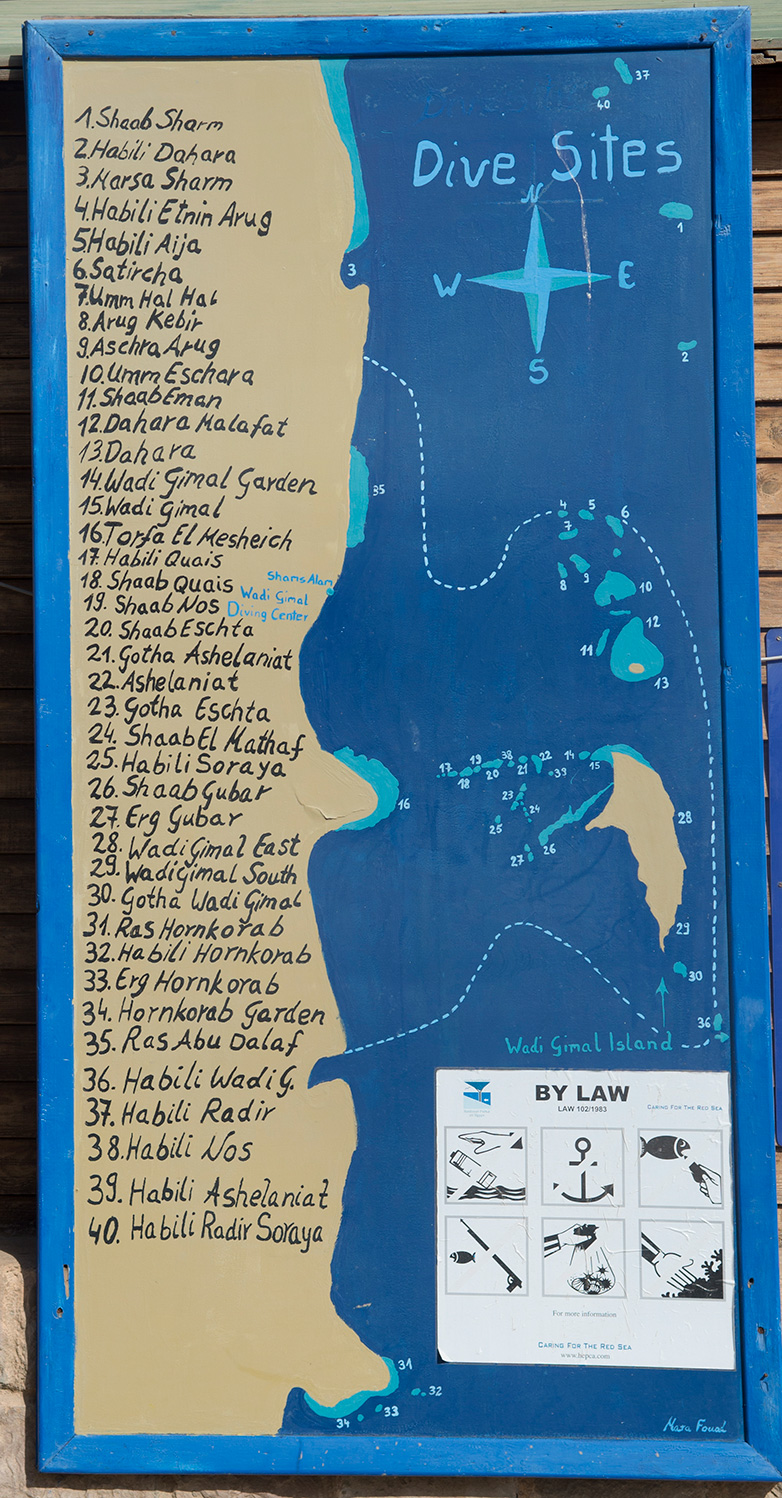 Dive Sites
N
W
E
S
1. Shaab Sharm
2. Habili Dahara
3. Marsa Sharm
4. Habili Etnin Arug
5 Habili Aija
6. Satircha
7. Umm Hal Hal
8. Arug Kebir
9. Aschra Arug
10. Umm Eschara
11. Shaab Eman
12. Dahara Malafat
13. Dahara
14. Wadi Gimal Garden
15. Wadi Gimal
16. Torfa El Mesheich
17. Habili Quais
18. Shaab Quais
19. Shaab Nos
20. Shaab Eschta
21. Gotha Ashelaniat
22. Ashelaniat
23. Gotha Eschta
24. Shaab El Mathaf
25. Habili Soraya
26. Shaab Gubar
27. Erg Gubar
28. Wadi Gimal East
29. Wadi Gimal South
30. Gotha Wadi Gimal
31. Ras Hornkorab
32. Habili Hornkorab
33. Erg Hornkorab
34. Hornkorab Garden
35. Ras Abu Dalaf
36. Habili Wadi G.
37. Habili Radir
38. Habili Nos
39. Habili Ashelaniat
40. Habili Radir Soraya
Shams Alam
Wadi Gimal
Diving Center
37
40
1
3
2
35
4 5 6
7
8 9
10
12
11
13
17 18 19 20 38 21 22 39 14 15
23
24
25
26
27
16
28
29
30
36
Wadi Gimal Island
BY LAW
LAW 102/1983
CARING FOR THE RED SEA
For more information
CARING FOR THE RED SEA
www.hepca.com
31
32
33
34